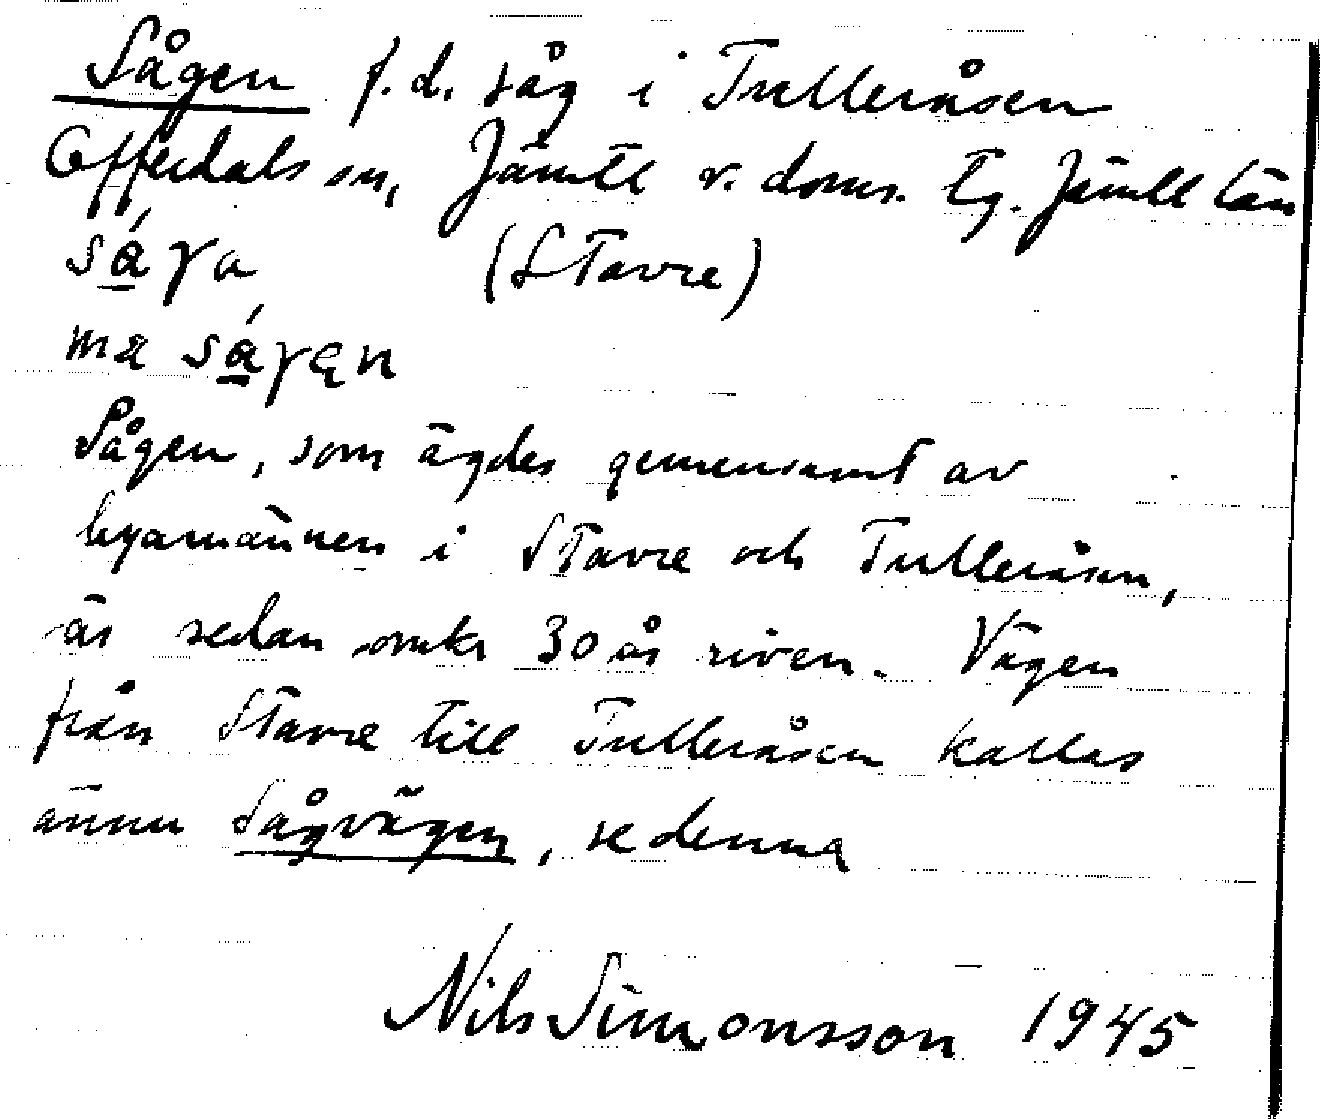 Sågen f.d. såg i Tulleråsen
Offerdals sn, Jämtl v. doms. tg. Jämtl län
sá̱γa (Stavre)
mæ sá̱γęn
Sågen, som ägdes gemensamt av
byamännen i Stavre och Tulleråsen,
är sedan omkr 30 år riven. Vägen
från Stavre till Tulleråsen kallas
ännu Sågvägen, se denna
Nils Simonsson 1945